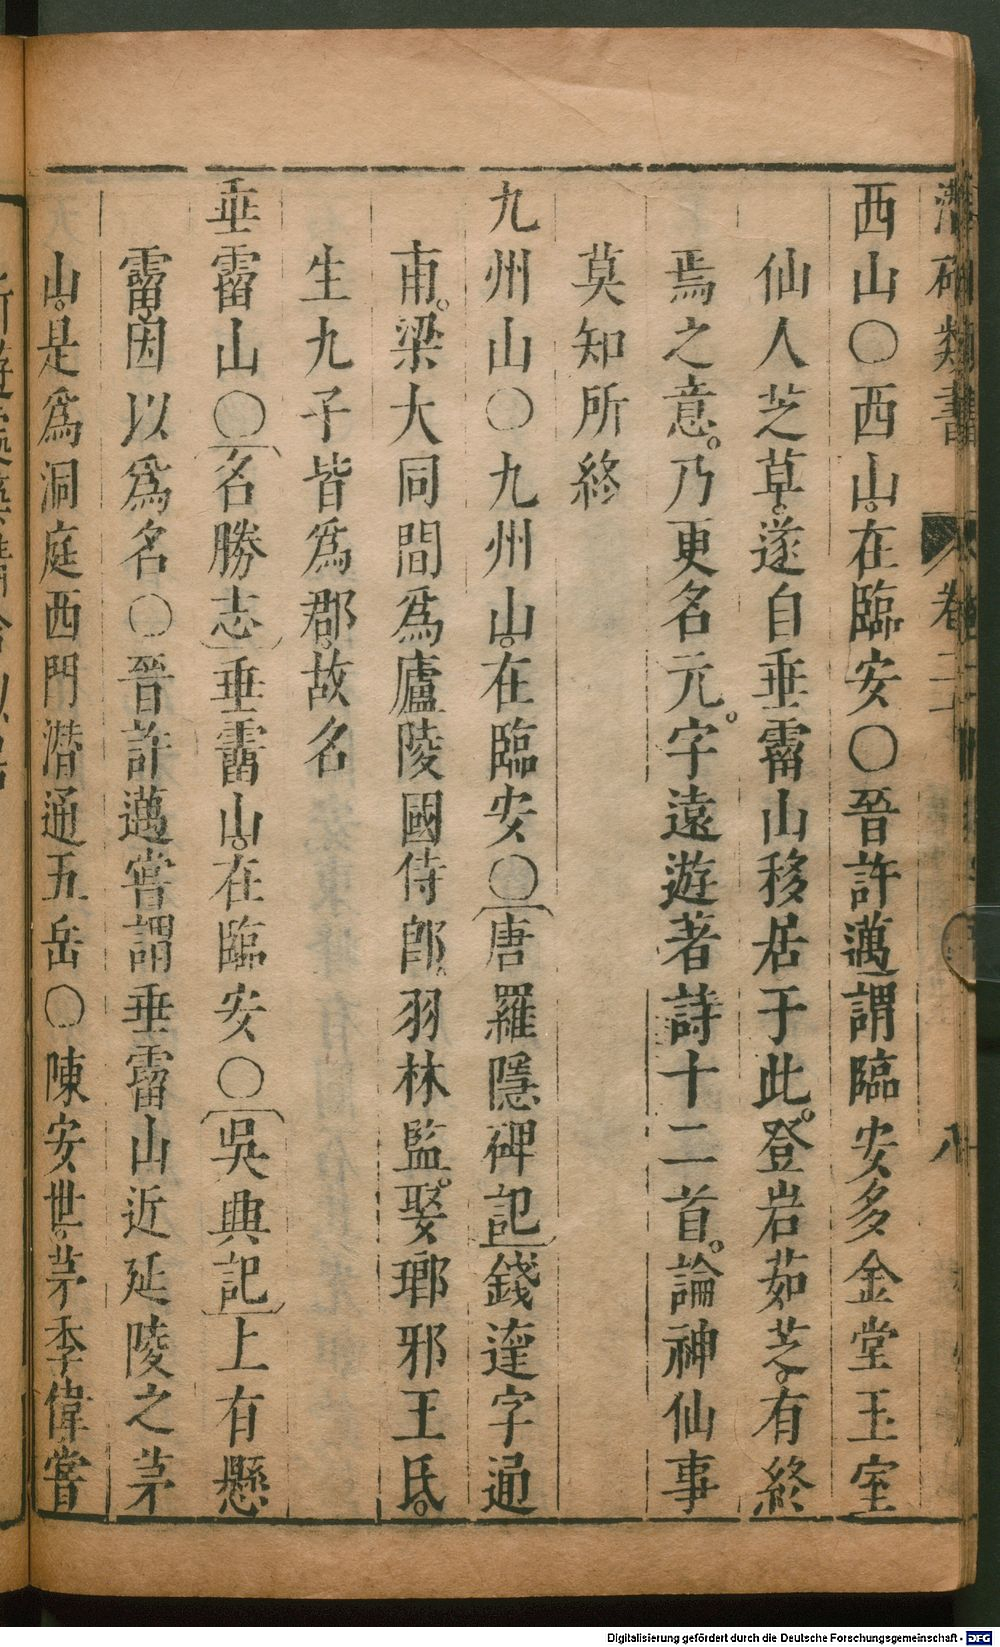 潛確類書 卷二十 八
西山〇西山在臨安〇晉許邁謂臨安多金堂玉室
仙人芝草遂自垂霤山移居于此登岩茹芝有終
焉之意乃更名元字遠遊著詩十二首論神仙事
莫知所終
九州山〇九州山在臨安〇唐羅隱碑記錢逵字通
甫梁大同間爲廬陵國侍郎羽林監娶瑯邪王氏
生九子皆爲郡故名
垂霤山〇名勝志垂霤山在臨安〇吳興記上有懸
霤因以爲名〇晉許邁嘗謂垂霤山近延陵之茅
山是爲洞庭西門潛通五岳〇陳安世茅季偉嘗
Digitalisierung gefördert durch die Deutsche Forschungsgemeinschaft - DFG